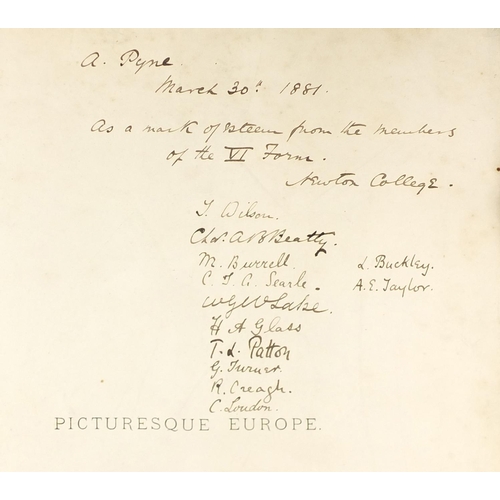 A. Pyne.
March 30th 1881.
As a mark of esteem from the members
of the VI Form.
Newton College.
T. Wilson.
Chas. A B Beatty.
M. Burrell. L. Buckley.
C. F. A. Searle. A. E. Taylor.
W G W Lake.
H A Glass
T. L. Patton
G. Turner.
R. Creagh.
C. Loudon.
PICTURESQUE EUROPE.